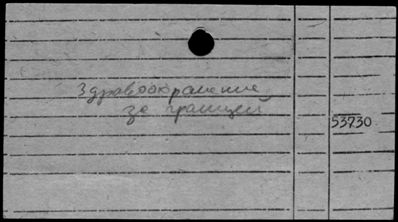 Здравоохранение
за границей
53730